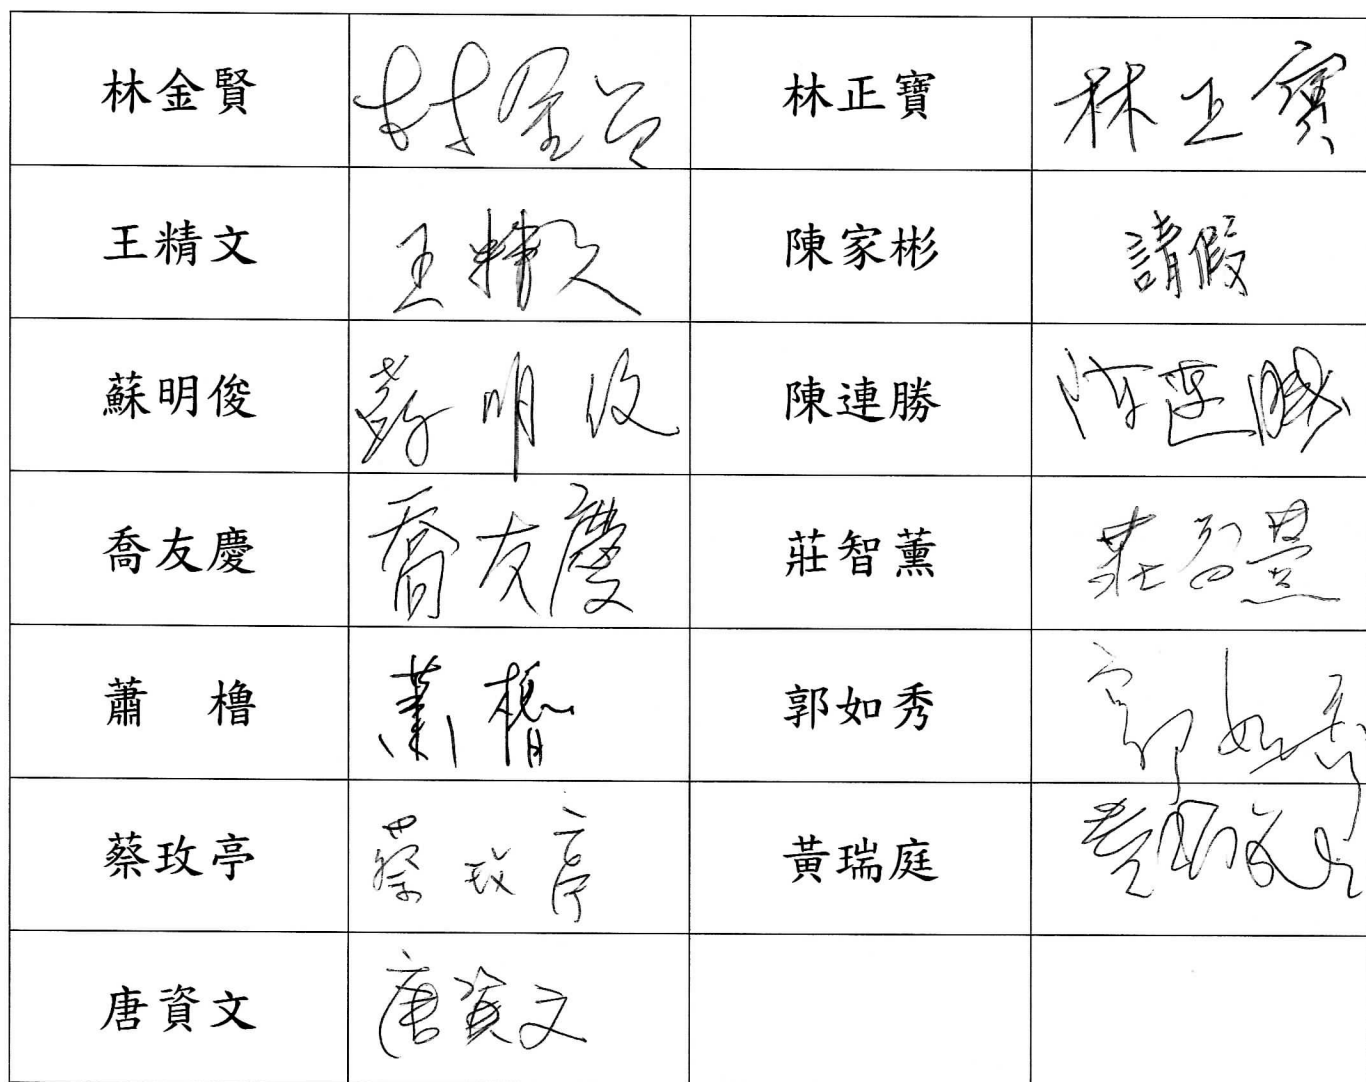 林金賢 林金賢 林正寶 林正寶
王精文 王精文 陳家彬 請假
蘇明俊 蘇明俊 陳連勝 陳連勝
喬友慶 喬友慶 莊智薰 莊智薰
蕭 櫓 蕭櫓 郭如秀 郭如秀
蔡玫亭 蔡玫亭 黃瑞庭 黃瑞庭
唐資文 唐資文